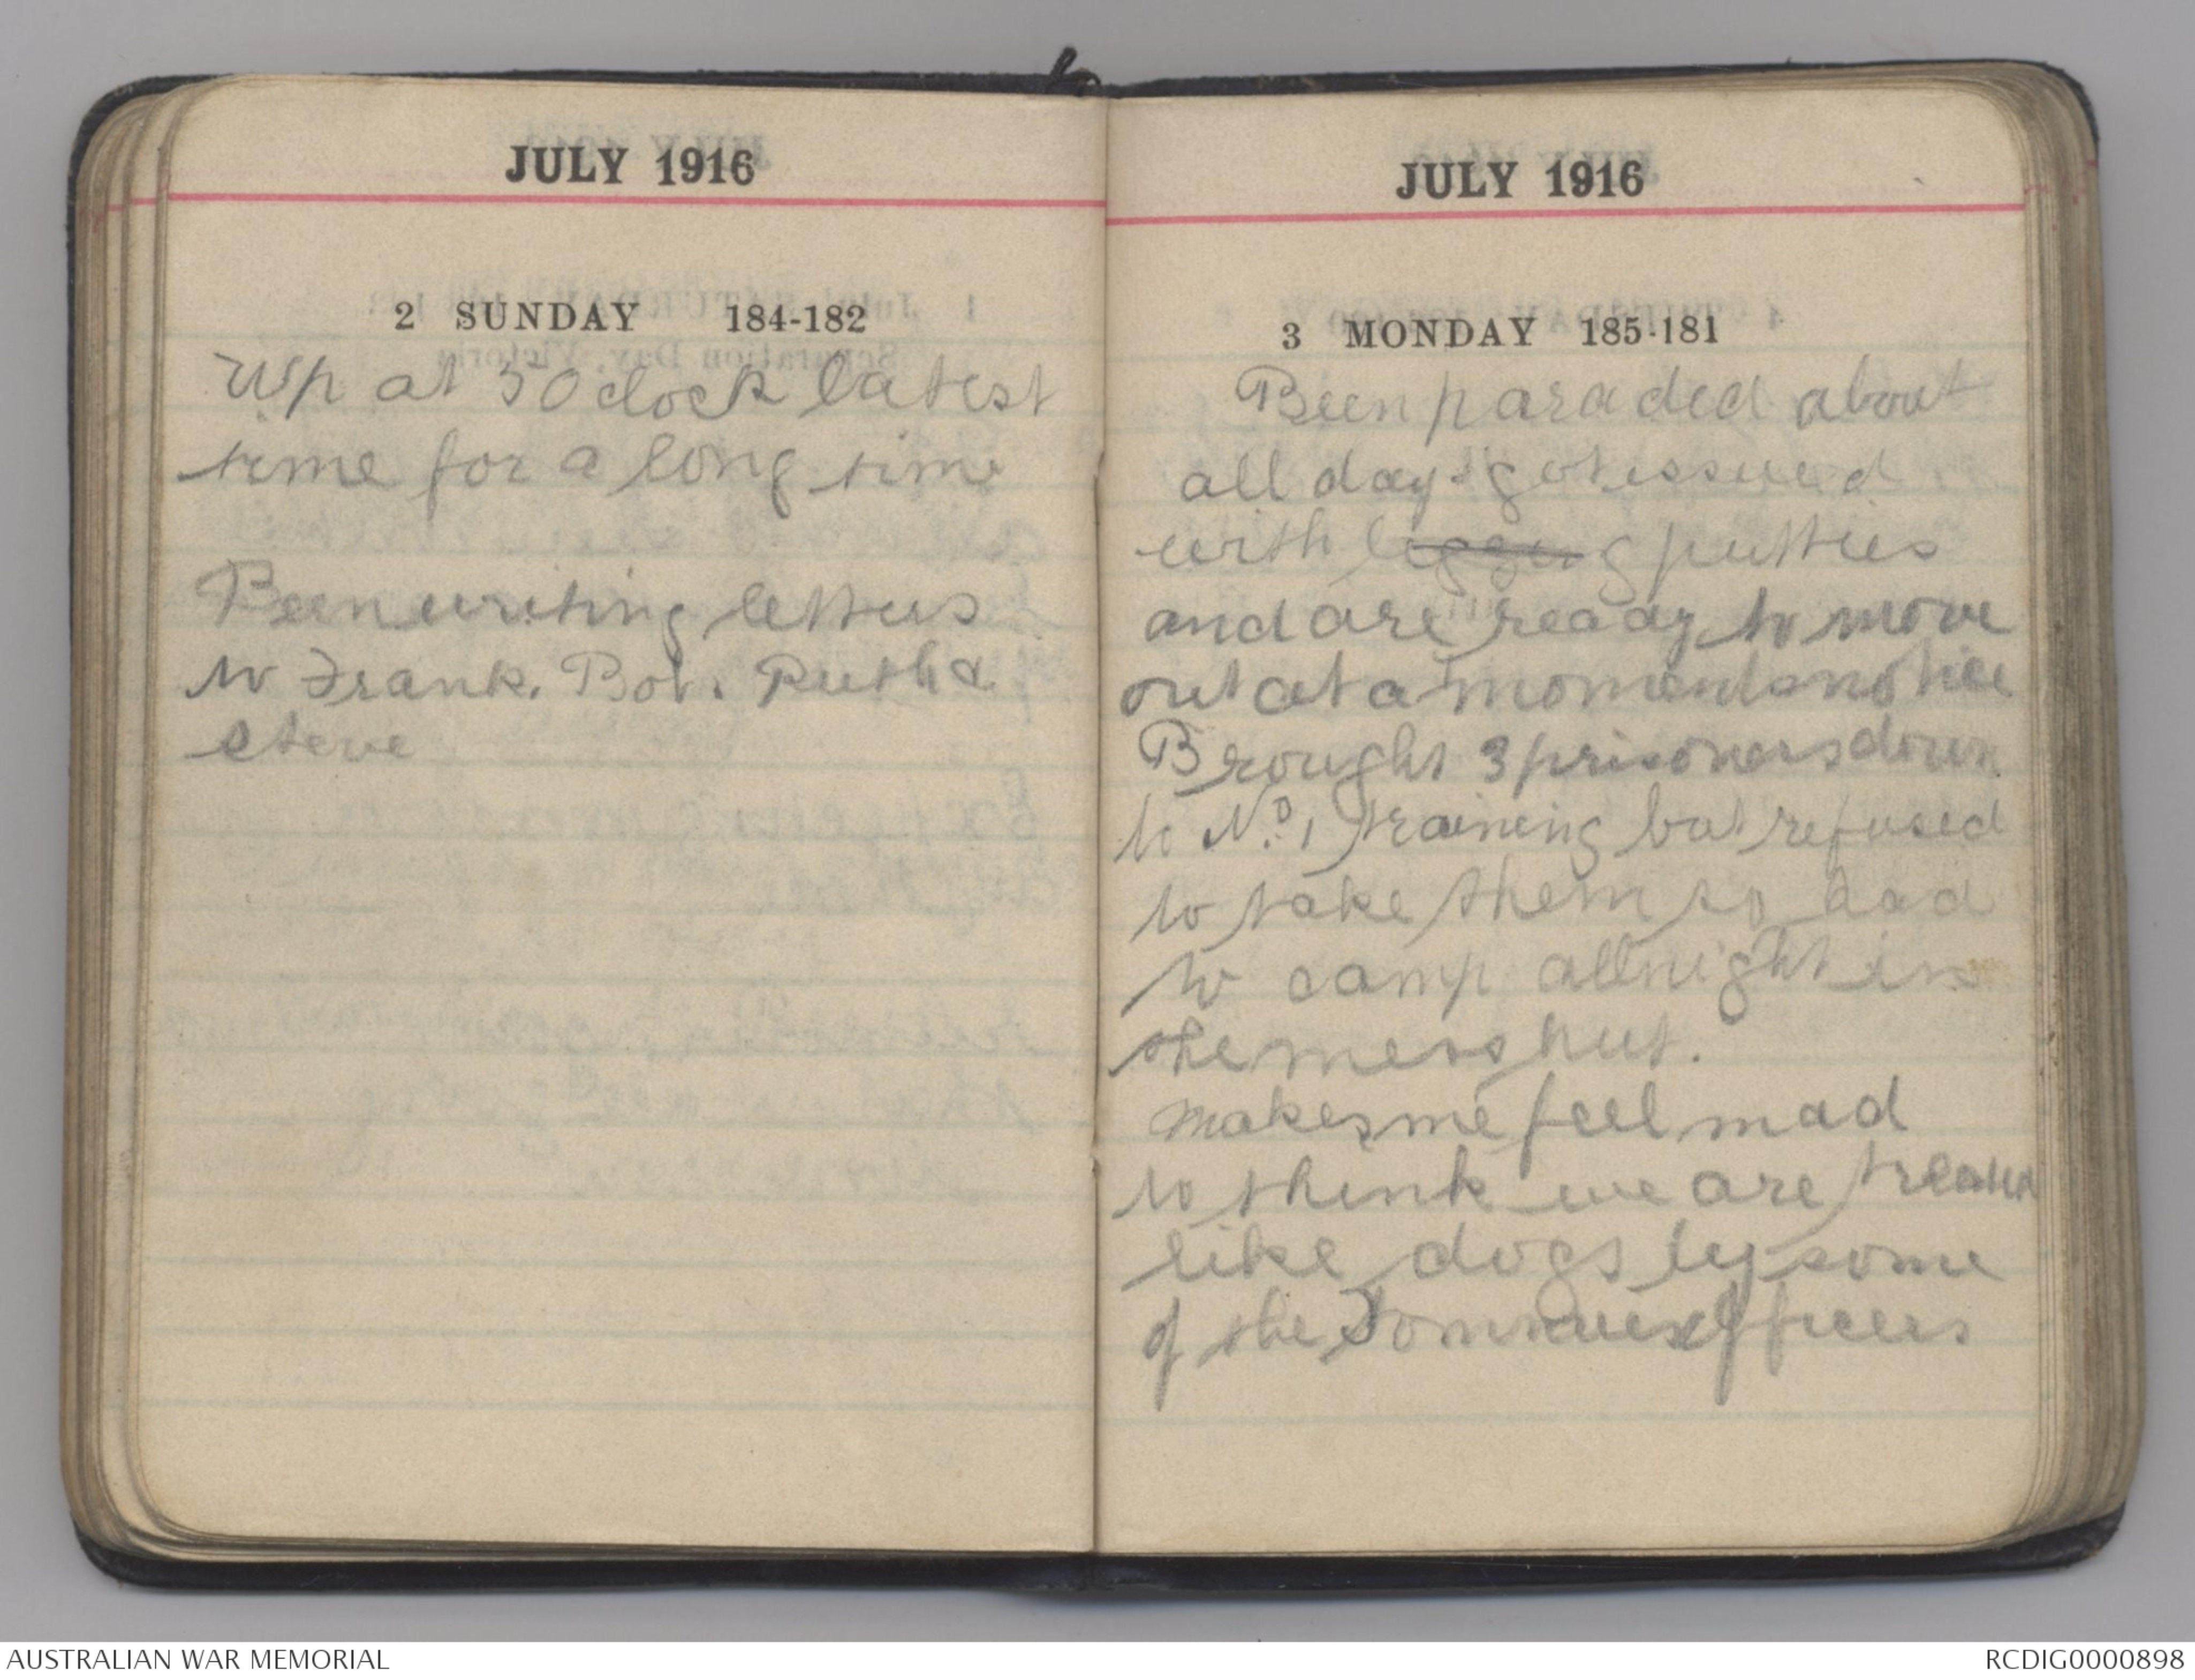 JULY 1916
2 SUNDAY 184-182
Up at 5 Oclock latest
time for a long time
Been writing letters
to Frank. Bob. Ruth &
Steve
JULY 1916
3 MONDAY 185-181
Been paraded about
all day & got issued
with legging putties
and are ready to move
out at a moments notice
Brought 3 prisoners down
to No. 1 training but refused
to take them so had
to camp all night in
the mess hut.
Makes me feel mad
to think we are treated
like dogs by some
of the Tommies Officers
AUSTRALIAN WAR MEMORIAL
RCDIG0000898